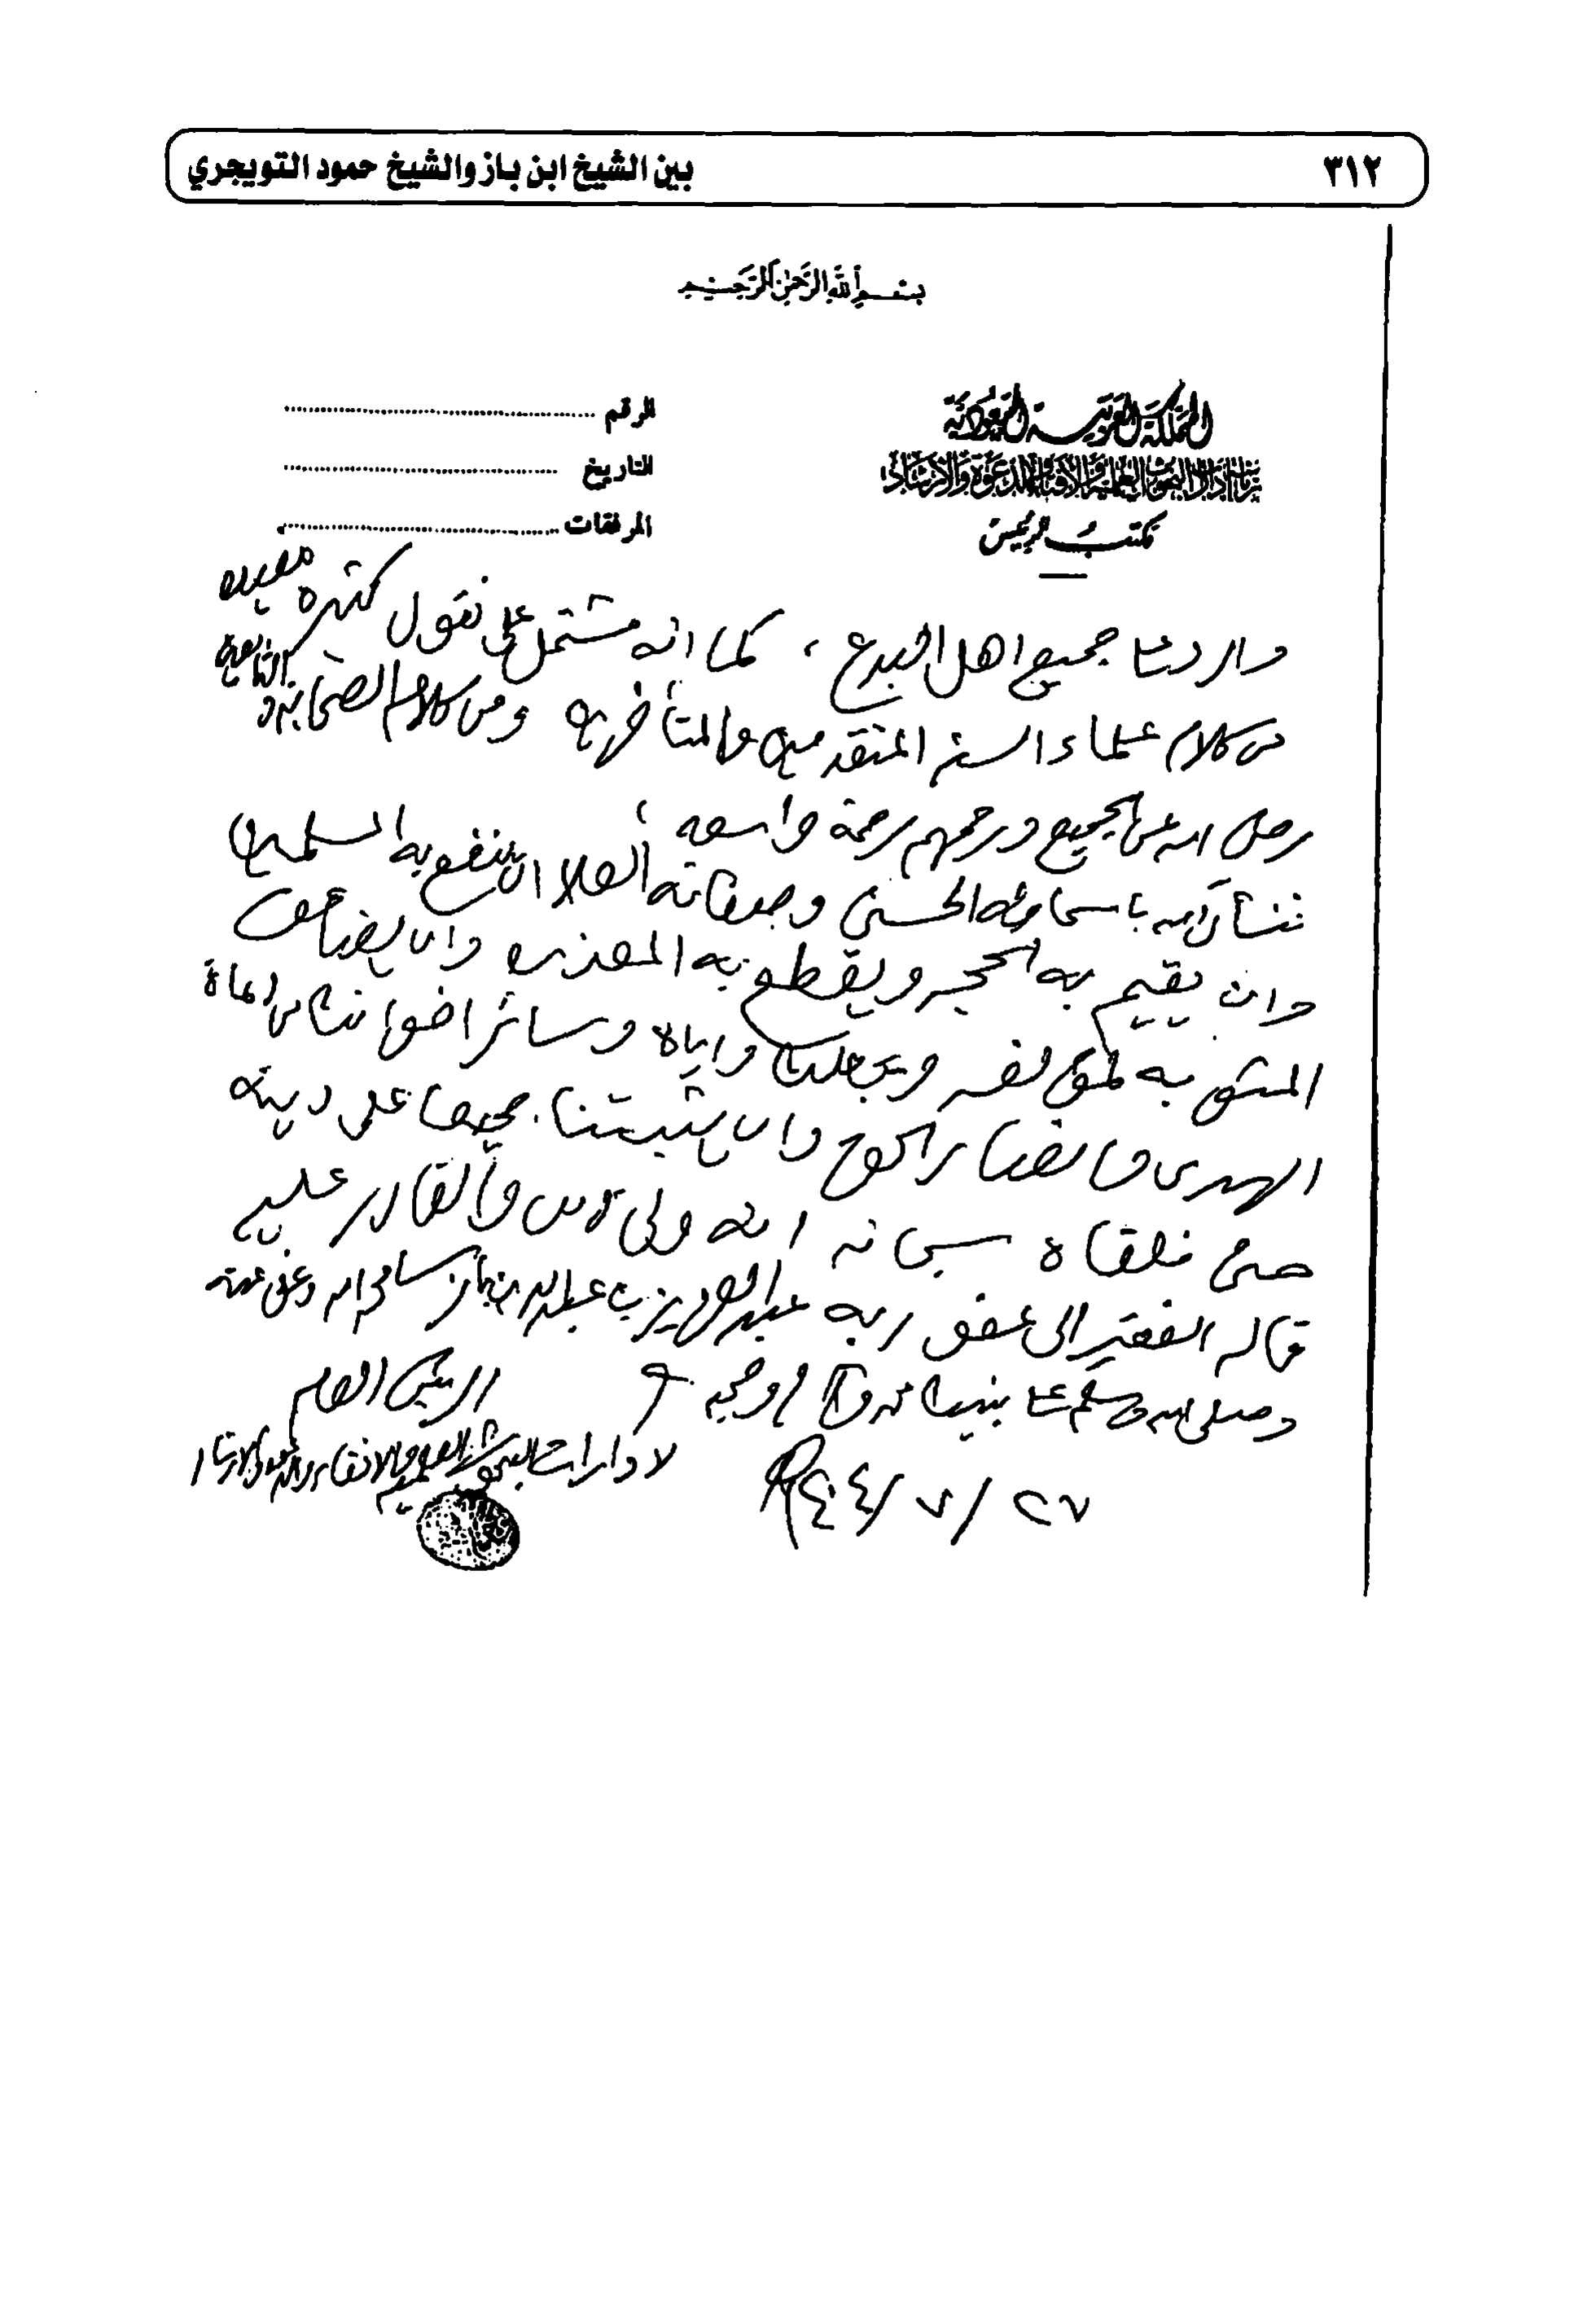 ٣١٢
بين الشيخ ابن باز والشيخ حمود التويجري
بسم الله الرحمن الرحيم
المملكة العربية السعودية
رئاسة إدارات البحوث العلمية والإفتاء والدعوة والإرشاد
مكتب الرئيس
الرقم
التاريخ
المرفقات
والرد على جميع اهل البدع ، كما انه مشتمل على نقول كثيرة مفيده
من كلام علماء السنه المتقدمين والمتأخرين ومن كلام الصحابة والتابعين
رضي الله عن الجميع ورحمهم رحمة واسعه ؛
فنسأل الله باسمائه الحسنى وصفاته العلا ان ينفع به المسلمين
وان يقيم به الحجه ويقطع به المعذره وان يضاعف
المثوبه لمؤلفه ويجعلنا واياه وسائر اخواننا من دعاة
الهدى وانصار الحق وان يثبتنا جميعا على دينه
حتى نلقاه سبحانه انه ولي ذلك والقادر عليه
قاله الفقير الى عفو ربه عبد العزيز بن عبد الله بن باز سامحه الله وعفى عنه
وصلى الله وسلم على نبينا محمد وآله وصحبه
الرئيس العام
لادارات البحوث العلميه والافتاء والدعوة والارشاد
٢٧ / ٧ /